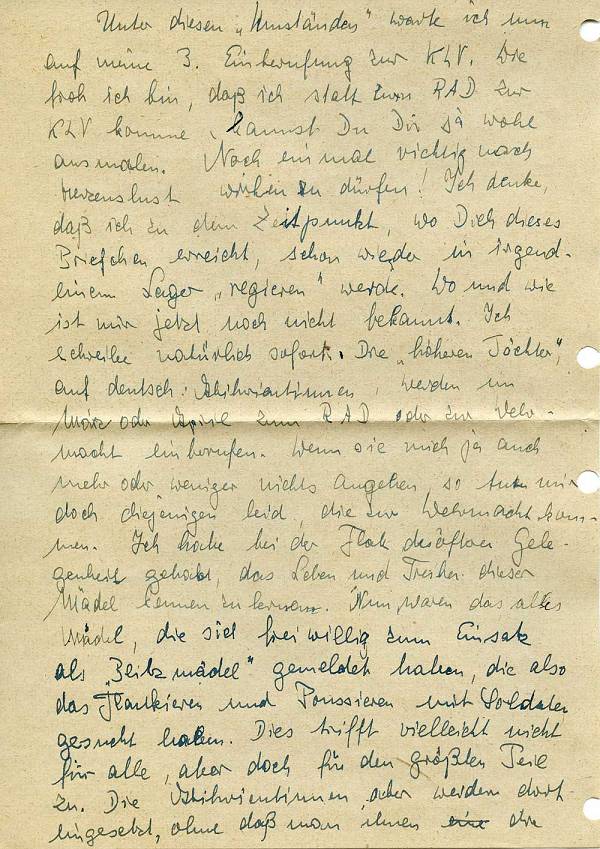 Unter diesen „Umständen" warte ich nun
auf meine 3. Einberufung zur KLV. Wie
froh ich bin, daß ich statt zum RAD zur
KLV komme, kannst Du Dir ja wohl
ausmalen. Noch einmal richtig nach
Herzenslust wirken zu dürfen! Ich denke,
daß ich zu dem Zeitpunkt, wo Dich dieses
Briefchen erreicht, schon wieder in irgend-
einem Lager „regieren" werde. Wo und wie
ist mir jetzt noch nicht bekannt. Ich
schreibe natürlich sofort. Die „höheren Töchter",
auf deutsch: Abiturientinnen, werden im
März oder April zum RAD oder zur Wehr-
macht einberufen. Wenn sie mich ja auch
mehr oder weniger nichts angehen, so tun mir
doch diejenigen leid, die zur Wehrmacht kom-
men. Ich habe bei der Flak des öfteren Gele-
genheit gehabt, das Leben und Treiben dieser
Mädel kennen zu lernen. Nun, waren das alles
Mädel, die sich freiwillig zum Einsatz
als „Blitzmädel" gemeldet haben, die also
das Flankieren und Poussieren mit Soldaten
gesucht haben. Dies trifft vielleicht nicht
für alle, aber doch für den größten Teil
zu. Die Abiturientinnen aber werden dort
eingesetzt, ohne daß man ihnen eine die